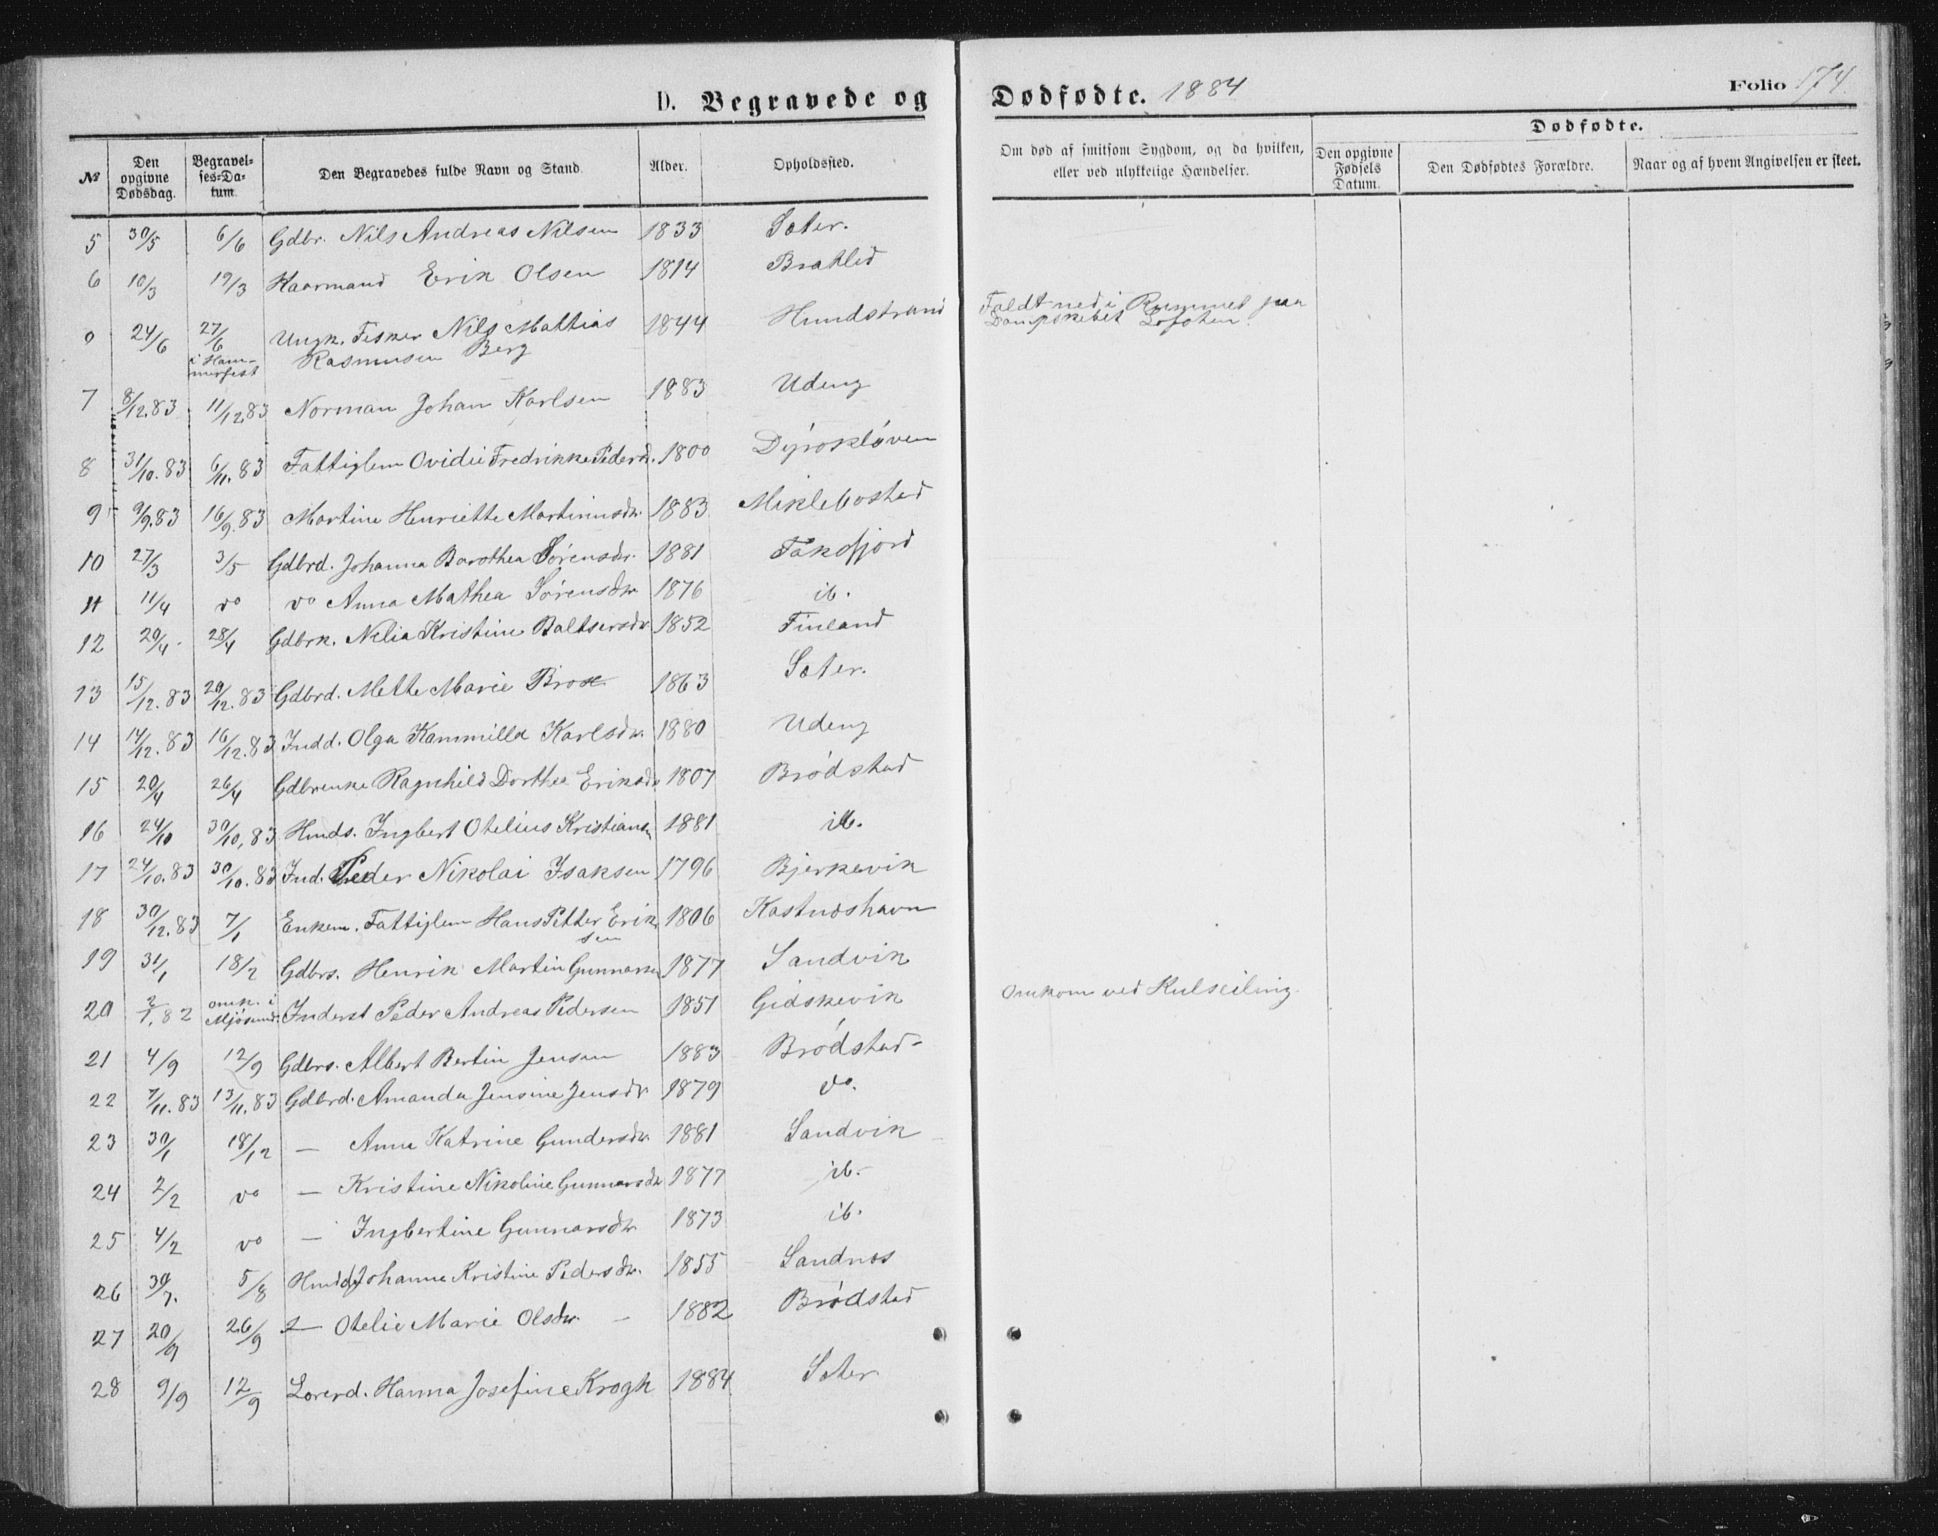 D. Begravede og Dødfødte. 1884 Folio 174
№ Den opgivne Dødsdag. Begravelses-Datum. Den Begravedes fulde Navn og Stand. Alder. Opholdssted. Om død af smitsom Sygdom, og da hvilken, eller ved ulykkelige Hændelser. Dødfødte. Den opgivne Fødsels Datum. Den Dødfødtes Forældre. Naar og af hvem Angivelsen er skeet.
5 30/5 6/6 Gdbr. Nils Andreas Nilsen 1833 Sæter.
6 10/3 19/3 Haarmand Erik Olsen 1814 Bratlid
0 24/6 27/6 i Hammerfest Ungk. Fisker Nils Mattias Rasmusen Berg 1844 Hundstrand Faldt ned i Rummet paa Dampskibet Lofoten.
7 8/12.83 11/12.83 Norman Johan Karlsen 1883 Udeng
8 31/10.83 6/11.83 Fattiglem Ovidie Fredrikke Pedersd. 1800 Dyrøkløven
9 9/9.83 16/9.83 Martine Henriette Martinusdr. 1883 Miklebostad
10 27/3 3/5 Gdbrd. Johanna Dorothea Sørensdr. 1881 Faxfjord
11 11/4 do do Anna Mathea Sørensdr 1876 ib.
12 20/4 28/4 Gdbrk. Nelia Kristine Baltsersdr 1852 Finland
13 15/12.83 20/12.83 Gdbrd. Mette Marie Brox 1863 Sæter.
14 14/12.83 16/12.83 Indd. Olga Kammilla Karlsdr. 1880 Udeng
15 20/4 26/4 Gdbrenke Ragnhild Dorthea Eriksdr 1807 Brødstad
16 24/10 30/10.83 Hmds. Ingbert Otelius Kristians. 1881 ib.
17 24/10.83 30/10.83 Ind. Peder Nikolai Isaksen 1796 Bjerkevik
18 30/12.83 7/1 Enkem. Fattiglem Hans Petter Eriksen 1806 Kastneshavn
19 31/1 18/2 Gdbrs. Henrik Martin Gunnarsen 1877 Sandvik
20 2/1.82 omk. i Mjøsund. Inderst Peder Andreas Pedersen 1851 Gidskevik Omkom ved Kulseiling.
21 4/9 12/9 Gdbrs. Albert Bertin Jensen 1883 Brødstad
22 7/11.83 13/11.83 Gdbrd. Amanda Jensine Jensdr 1879 do.
23 30/1 18/12 — Anna Katrine Gundersdr. 1881 Sandvik
24 2/2 do — Kristine Nikoline Gunnarsdr 1877 ib.
25 4/2 do — Ingbertine Gunnarsdr 1873 ib.
26 30/7. 5/8 Hmdd Johanna Kristine Pedersdr. 1855 Sandnes
27 20/9 26/9 — Otelie Marie Olsdr. 1882 Brødstad
28 9/9 12/9 Lærerd. Hanna Josefine Krogh 1884 Sæter